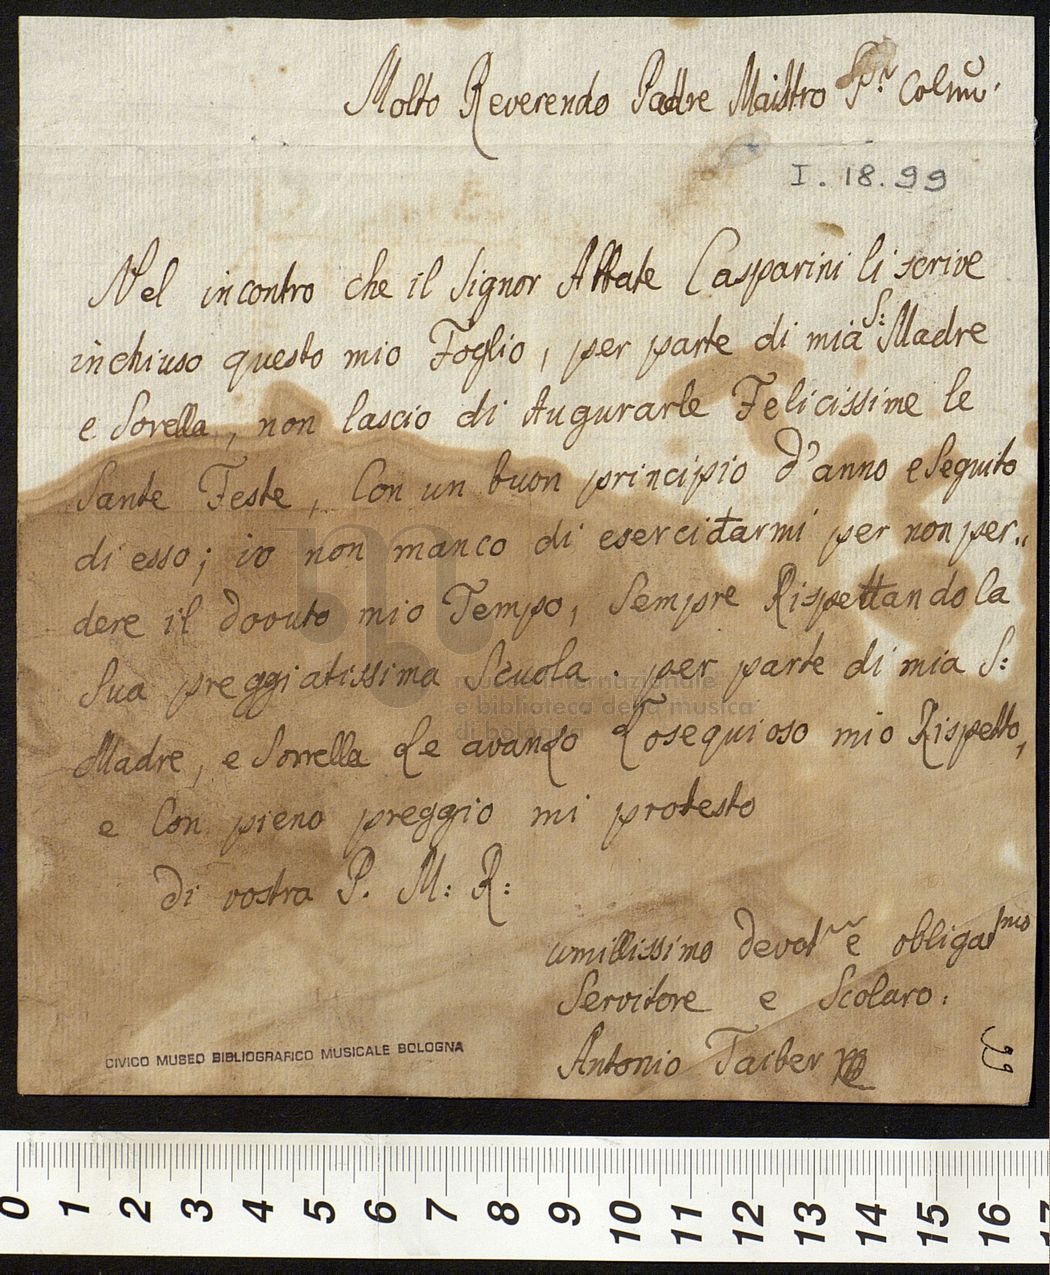 Molto Reverendo Padre Maistro Pr. Colmo.
I. 18. 99
Nel incontro che il Signor Abbate Casparini li scrive
inchiuso questo mio Foglio, per parte di mia S: Madre
e Sorella, non lascio di Augurarle Felicissime le
Sante Feste, Con un buon principio d'anno e Seguito
di esso; io non manco di esercitarmi per non per„
dere il dovuto mio Tempo, Sempre Rispettando la
Sua preggiatissima Scuola. per parte di mia S:
Madre, e Sorrella Le avanzo L'osequioso mio Rispetto,
e Con pieno preggio mi protesto
Di vostra P. M: R:
umillissimo devot e obligatmo
Servitore e Scolaro:
Antonio Taiber
99
CIVICO MUSEO BIBLIOGRAFICO MUSICALE BOLOGNA
museo internazionale
e biblioteca della musica
di bologna
0 1 2 3 4 5 6 7 8 9 10 11 12 13 14 15 16 17